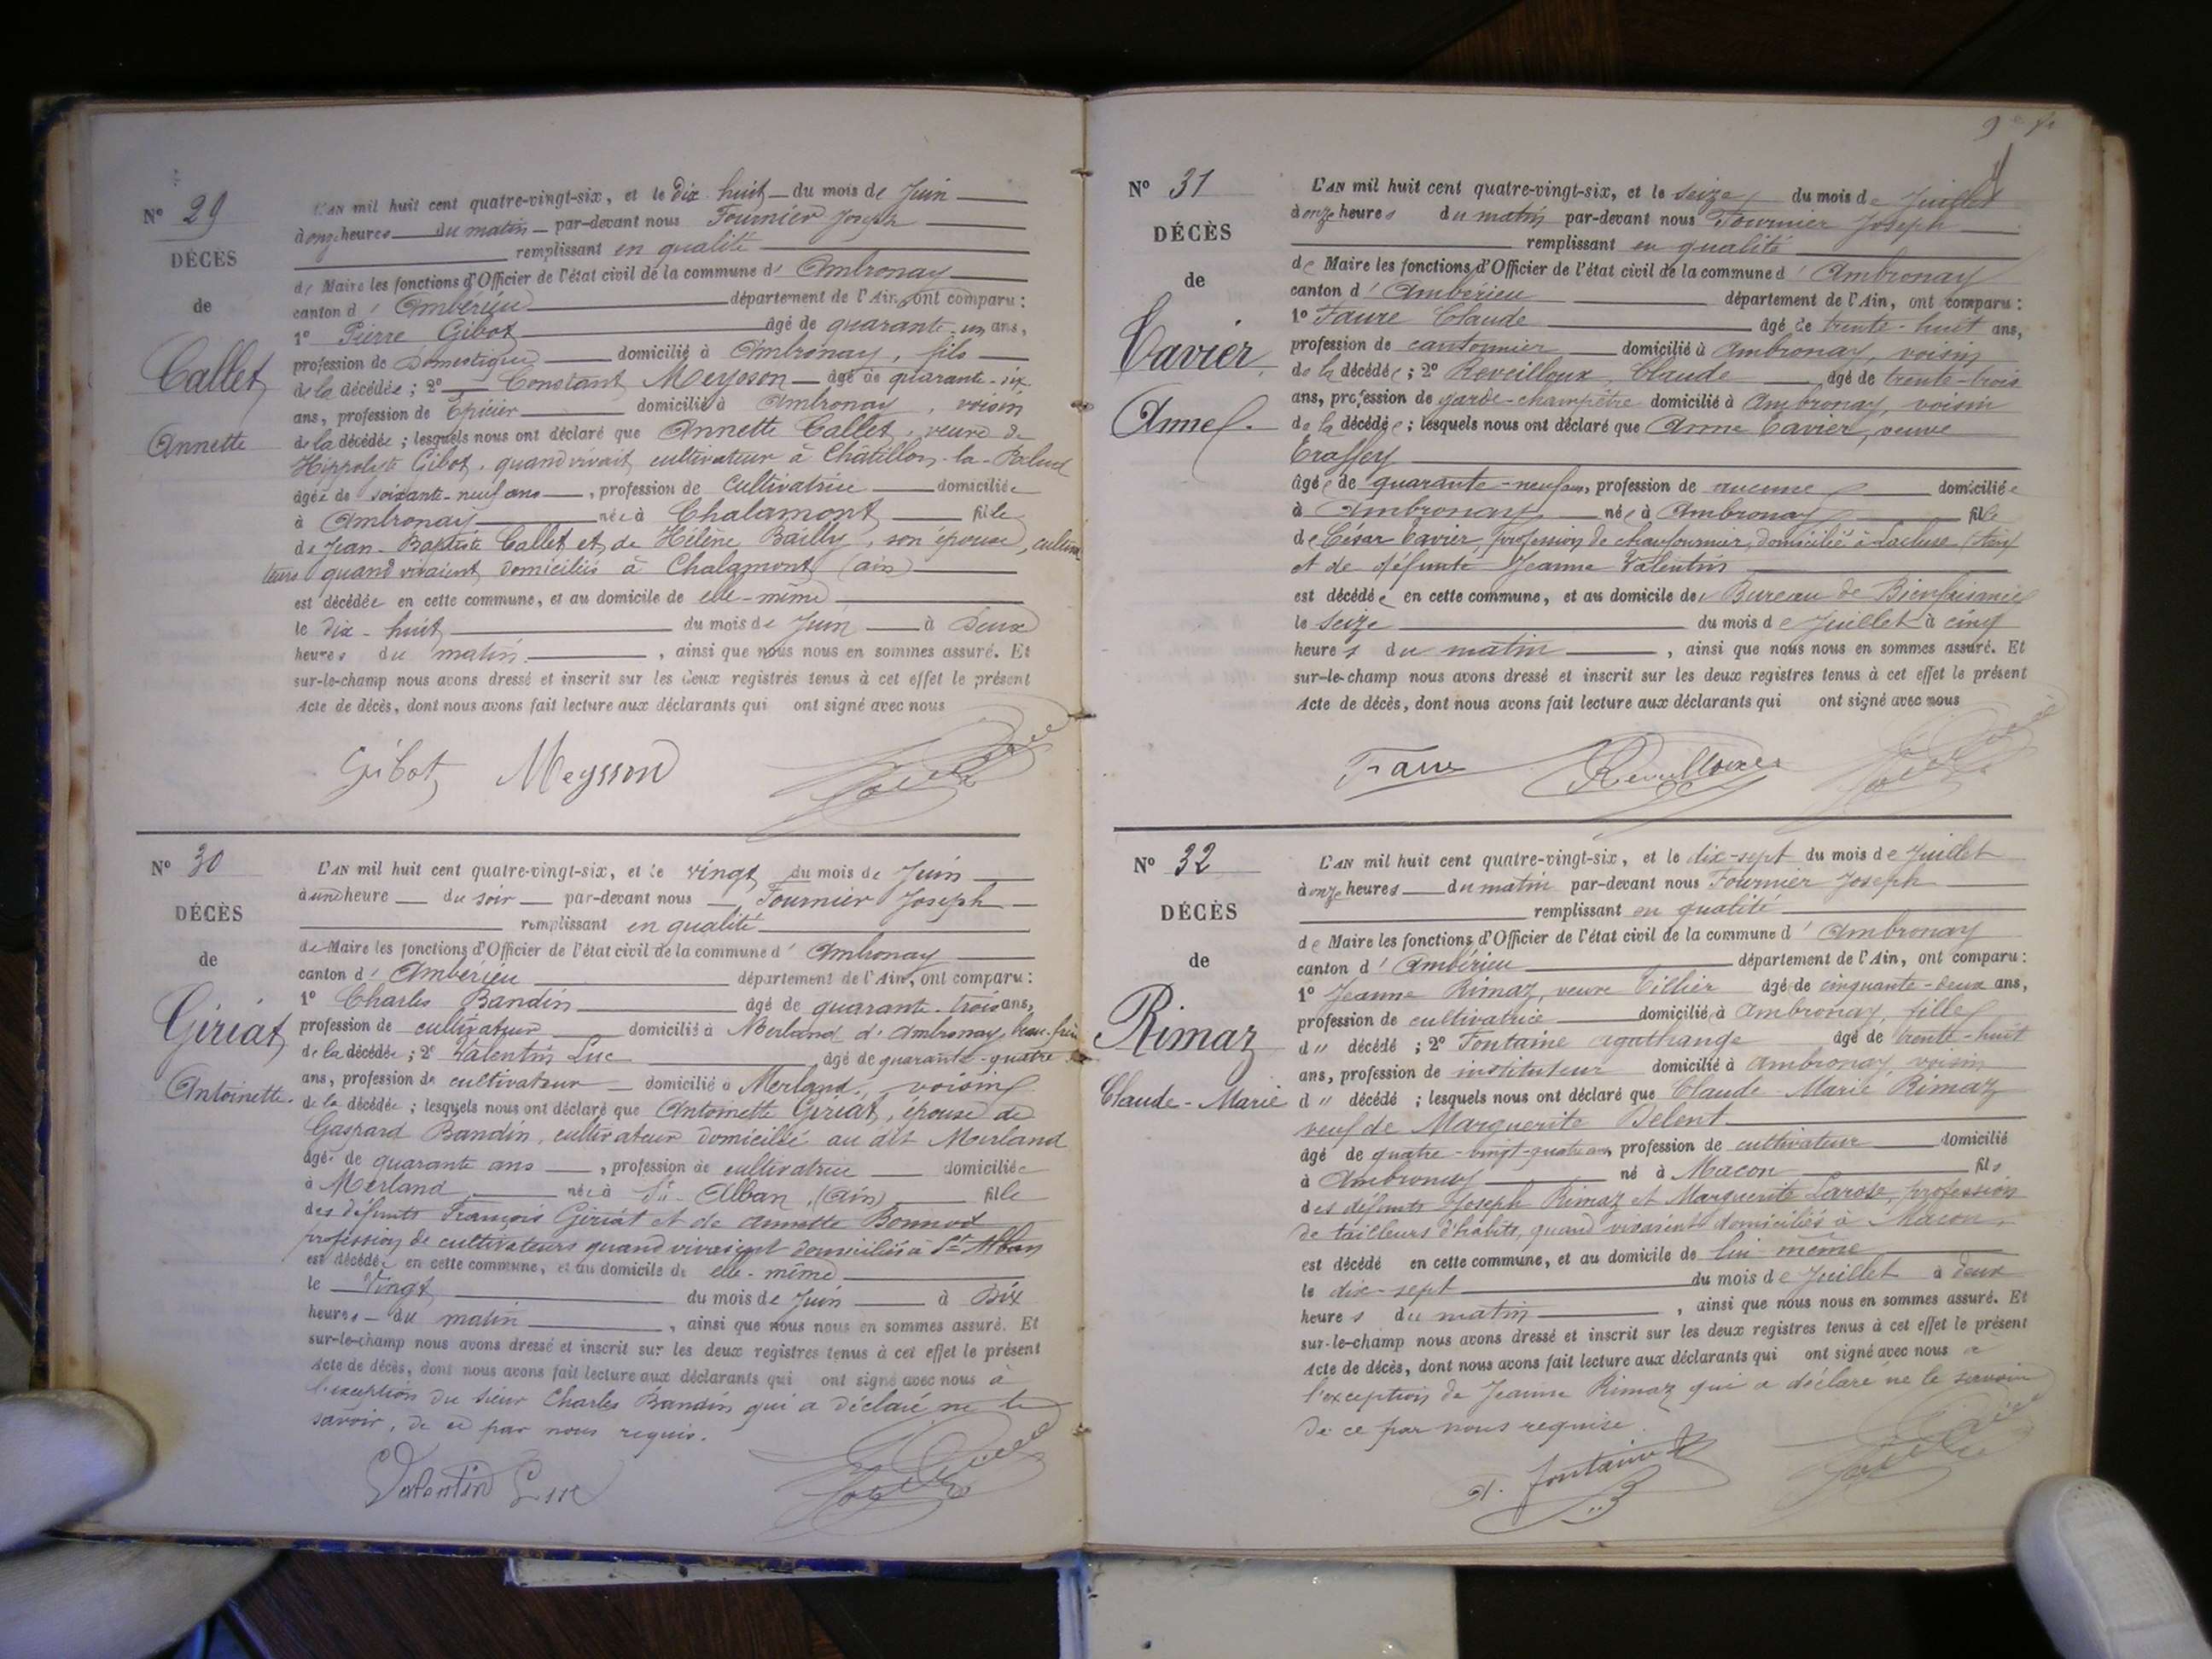 Nº 29
DÉCÈS
de
Callet
Annette
L'AN mil huit cent quatre-vingt-six, et le Dix-huit du mois de Juin
à onze heures du matin par-devant nous Fournier Joseph
remplissant en qualité
de Maire les fonctions d'Officier de l'état civil de la commune d' Ambronay
canton d' Ambérieu département de l'Ain, ont comparu :
1º Pierre Gibot âgé de quarante-un ans,
profession de Domestique domicilié à Ambronay, fils
de la décédée ; 2º Constant Meysson âgé de quarante-six
ans, profession de Épicier domicilié à Ambronay, voisin
de la décédée ; lesquels nous ont déclaré que Annette Callet, veuve de
Hippolyte Gibot, quand vivait cultivateur à Châtillon-la-Palud
âgée de soixante-neuf ans, profession de Cultivatrice domiciliée
à Ambronay née à Chalamont fille
de Jean-Baptiste Callet et de Hélène Bailly, son épouse, cultiva
teurs quand vivaient domiciliés à Chalamont (ain)
est décédée en cette commune, et au domicile de elle-même
le dix-huit du mois de Juin à Deux
heures du matin, ainsi que nous nous en sommes assuré. Et
sur-le-champ nous avons dressé et inscrit sur les deux registres tenus à cet effet le présent
Acte de décès, dont nous avons fait lecture aux déclarants qui ont signé avec nous
Gibot Meysson
Nº 30
DÉCÈS
de
Giriat
Antoinette.
L'AN mil huit cent quatre-vingt-six, et le vingt du mois de Juin
à une heure du soir par-devant nous Fournier Joseph
remplissant en qualité
de Maire les fonctions d'Officier de l'état civil de la commune d' Ambronay
canton d' Ambérieu département de l'Ain, ont comparu :
1º Charles Bandin âgé de quarante-trois ans,
profession de cultivateur domicilié à Merland d'Ambronay, beau-frère
de la décédée ; 2º Valentin Luc âgé de quarante-quatre
ans, profession de cultivateur domicilié à Merland, voisin
de la décédée ; lesquels nous ont déclaré que Antoinette Giriat, épouse de
Gaspard Bandin, cultivateur domicilié au dit Merland
âgée de quarante ans, profession de cultivatrice domiciliée
à Merland née à St-Alban, (Ain) fille
des défunts François Giriat et de Annette Bonnod
profession de cultivateurs quand vivaient domiciliés à St Alban
est décédée en cette commune, et au domicile de elle-même
le Vingt du mois de Juin à Dix
heures du matin, ainsi que nous nous en sommes assuré. Et
sur-le-champ nous avons dressé et inscrit sur les deux registres tenus à cet effet le présent
Acte de décès, dont nous avons fait lecture aux déclarants qui ont signé avec nous à
l'exception du sieur Charles Bandin qui a déclaré ne le
savoir, de ce par nous requis.
Valentin Luc
Nº 31
DÉCÈS
de
Cavier
Anne
L'AN mil huit cent quatre-vingt-six, et le seize du mois de Juillet
à onze heures du matin par-devant nous Fournier Joseph
remplissant en qualité
de Maire les fonctions d'Officier de l'état civil de la commune d' Ambronay
canton d' Ambérieu département de l'Ain, ont comparu :
1º Faure Claude âgé de trente-huit ans,
profession de cantonnier domicilié à Ambronay, voisin
de la décédée ; 2º Reveilloux Claude âgé de trente-trois
ans, profession de garde-champêtre domicilié à Ambronay, voisin
de la décédée ; lesquels nous ont déclaré que Anne Cavier, veuve
Traffey
âgée de quarante-neuf ans, profession de aucune domiciliée
à Ambronay née à Ambronay fille
de César Cavier, profession de chaufournier, domicilié à Lacluse (Ain)
et de défunte Jeanne Valentin
est décédée en cette commune, et au domicile de Bureau de Bienfaisance
le Seize du mois de Juillet à cinq
heures du matin, ainsi que nous nous en sommes assuré. Et
sur-le-champ nous avons dressé et inscrit sur les deux registres tenus à cet effet le présent
Acte de décès, dont nous avons fait lecture aux déclarants qui ont signé avec nous
Faure Reveilloux
Nº 32
DÉCÈS
de
Rimaz
Claude-Marie
L'AN mil huit cent quatre-vingt-six, et le dix-sept du mois de Juillet
à onze heures du matin par-devant nous Fournier Joseph
remplissant en qualité
de Maire les fonctions d'Officier de l'état civil de la commune d' Ambronay
canton d' Ambérieu département de l'Ain, ont comparu :
1º Jeanne Rimaz, veuve Tillier âgé de cinquante-deux ans,
profession de cultivatrice domicilié à Ambronay, fille
d" décédé ; 2º Fontaine Agathange âgé de trente-huit
ans, profession de instituteur domicilié à Ambronay, voisin
d" décédé ; lesquels nous ont déclaré que Claude-Marie Rimaz
veuf de Marguerite Delent
âgé de quatre-vingt-quatre ans, profession de cultivateur domicilié
à Ambronay né à Macon fils
des défunts Joseph Rimaz et Marguerite Larose, profession
de tailleurs d'habits, quand vivaient domiciliés à Macon,
est décédé en cette commune, et au domicile de lui-même
le dix-sept du mois de Juillet à deux
heures du matin, ainsi que nous nous en sommes assuré. Et
sur-le-champ nous avons dressé et inscrit sur les deux registres tenus à cet effet le présent
Acte de décès, dont nous avons fait lecture aux déclarants qui ont signé avec nous à
l'exception de Jeanne Rimaz qui a déclaré ne le savoir
de ce par nous requise.
A. Fontaine